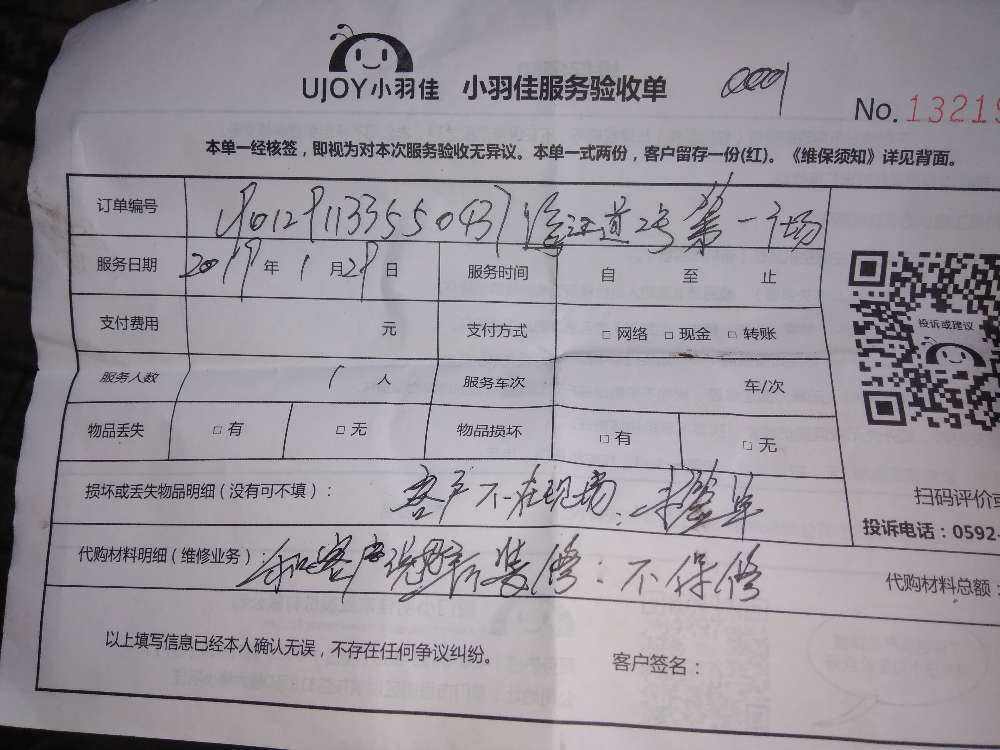 UJOY小羽佳 小羽佳服务验收单 0001
No. 13219
本单一经核签，即视为对本次服务验收无异议。本单一式两份，客户留存一份(红)。《维保须知》详见背面。
订单编号 道2号 第一广场
服务日期 2019年1月29日 服务时间 自 至 止
支付费用 元 支付方式 □ 网络 □ 现金 □ 转账
服务人数 1 人 服务车次 车/次
物品丢失 □ 有 □ 无 物品损坏 □ 有 □ 无
投诉或建议
损坏或丢失物品明细（没有可不填）： 客户不在现场，未签单
扫码评价或
投诉电话：0592-
代购材料明细（维修业务）： 和客户说明新装修：不保修
代购材料总额：
以上填写信息已经本人确认无误，不存在任何争议纠纷。 客户签名：